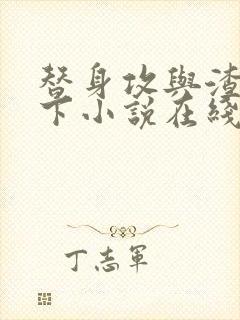 替身攻與渣
下小說在綫
丁志軍